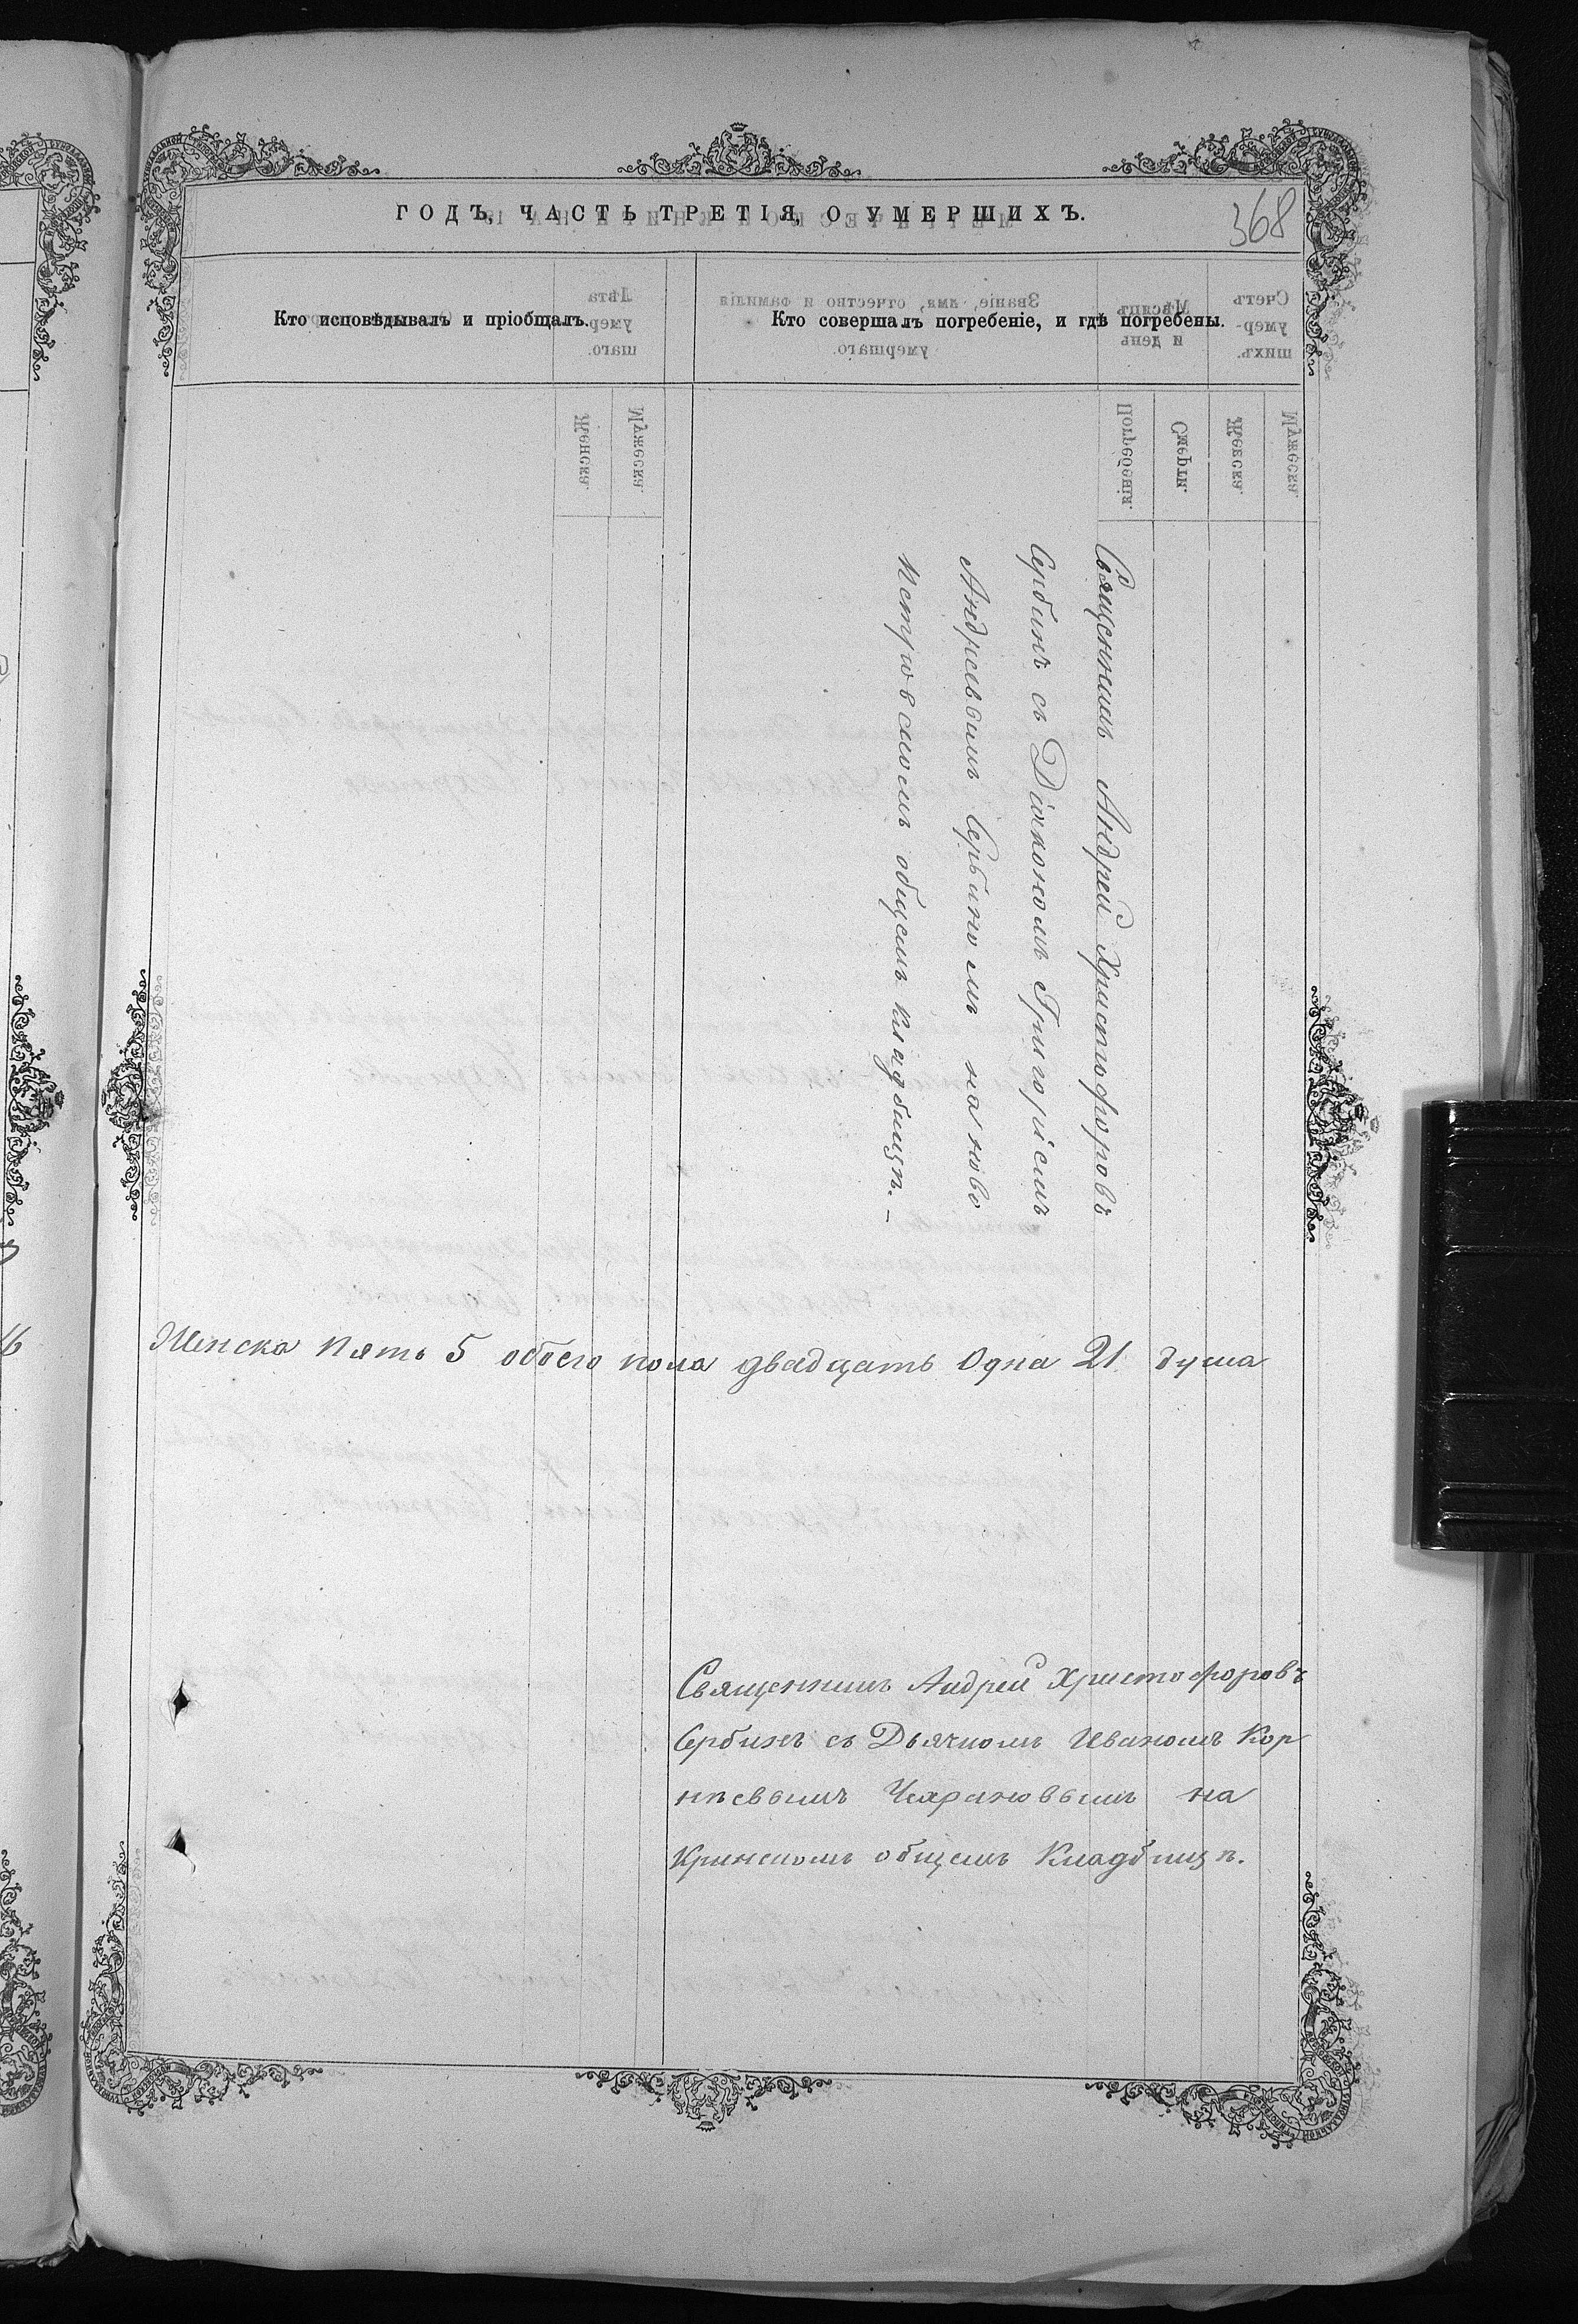 ГОДЪ, ЧАСТЬ ТРЕТІЯ, О УМЕРШИХЪ.
368
Кто исповѣдывалъ и пріобщалъ.
Кто совершалъ погребеніе, и гдѣ погребены.
Священникъ Андрей Христофоровъ
Сербинъ съ Діакономъ Григоріемъ
Андреевымъ Сербиномъ на ново
петровскомъ общемъ кладбищѣ. –
Женска пять 5 обоего пола двадцать одна 21 душа
Священникъ Андрей Христофоровъ
Сербинъ съ Дьячкомъ Иваномъ Кор
нѣевымъ на
Кринскомъ общемъ Кладбищѣ.